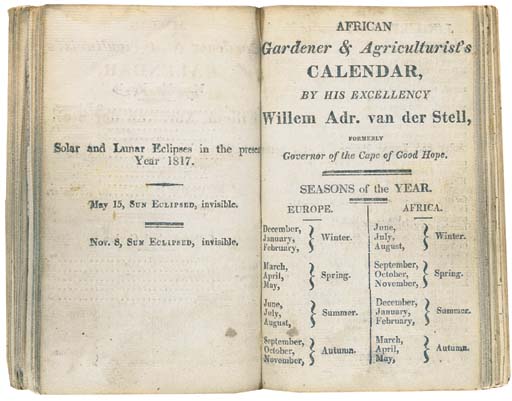 Solar and Lunar Eclipses in the presen
Year 1817.
May 15, SUN ECLIPSED, invisible.
Nov. 8, SUN ECLIPSED, invisible.
AFRICAN
Gardener & Agriculturist's
CALENDAR,
BY HIS EXCELLENCY
Willem Adr. van der Stell,
FORMERLY
Governor of the Cape of Good Hope.
SEASONS of the YEAR.
EUROPE.
December,
January,
February,
Winter.
March,
April,
May,
Spring.
June,
July,
August,
Summer.
September,
October,
November,
Autumn.
AFRICA.
June,
July,
August,
Winter.
September,
October,
November,
Spring.
December,
January,
February,
Summer.
March,
April,
May,
Autumn.